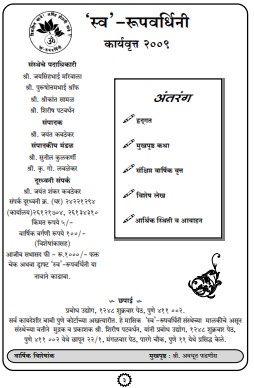 'स्व'-रूपवर्धिनी
कार्यवृत्त २००९
संस्थेचे पदाधिकारी
श्री. जयसिंहभाई मरिवाला
श्री. पुरूषोत्तमभाई श्रॉफ
श्री. श्रीकांत सामळ
श्री. शिरीष पटवर्धन
संपादक
श्री. जयंत कवठेकर
संपादकीय मंडळ
श्री. सुनील कुलकर्णी
श्री. कृ. गो. लवळेकर
दूरध्वनी संपर्क
श्री. जयंत शंकर कवठेकर
संपर्क दूरध्वनी क्र. (घर) २४२२१२९४
(कार्यालय)२६१२१७०४, २६१३४३१०
किंमत रूपये ५/-
वार्षिक वर्गणी रूपये १००/-
(विशेषांकासह)
आजीव सभासद फी - रू.१०००/- फक्त
चेक अथवा ड्राफ्ट 'स्व'-रूपवर्धिनी या
नावाने काढावा.
अंतरंग
हृद्‌गत
मुखपृष्ठ कथा
संक्षिप्त वार्षिक वृत्त
विशेष लेख
आर्थिक स्थिती व आवाहन
छपाई
प्रबोध उद्योग, १२४८ शुक्रवार पेठ, पुणे ४११ ००२.
सर्व कायदेशीर बाबी पुणे कोर्टाच्या अखत्यारीत. हे मासिक 'स्व'-रूपवर्धिनी संस्थेच्या मालकीचे असून
संस्थेच्या वतीने मुद्रक व प्रकाशक श्री. शिरीष पटवर्धन, यांनी प्रबोध उद्योग, १२४८ शुक्रवार पेठ,
पुणे ४११ ००२ येथे छापून २२/१, मंगळवार पेठ, पारगे चौक, पुणे ४११ येथे प्रसिद्ध केले.
वार्षिक विशेषांक
मुखपृष्ठ : श्री. अवधूत फडणीस